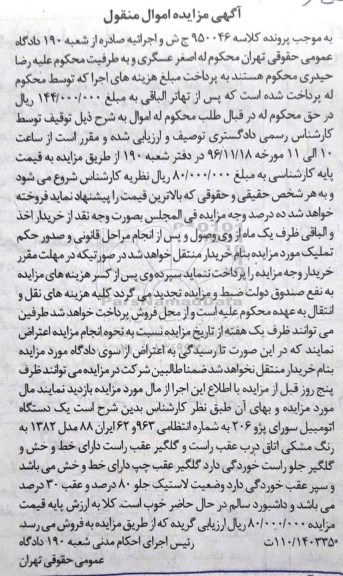 آگهی مزایده اموال منقول
به موجب پرونده کلاسه ۹۵۰۰۴۶ ج ش و اجرائیه صادره از شعبه ۱۹۰ دادگاه
عمومی حقوقی تهران محکوم له اصغر عسگری و به طرفیت محکوم علیه رضا
حیدری محکوم هستند به پرداخت مبلغ هزینه های اجرا که توسط محکوم
له پرداخت شده است که پس از تهاتر الباقی به مبلغ ۱۴۴/۰۰۰/۰۰۰ ریال
در حق محکوم له در قبال طلب محکوم له اموال به شرح ذیل توقیف توسط
کارشناس رسمی دادگستری توصیف و ارزیابی شده و مقرر است از ساعت
۱۰ الی ۱۱ مورخه ۹۶/۱۱/۱۸ در دفتر شعبه ۱۹۰ از طریق مزایده به قیمت
پایه کارشناسی به مبلغ ۸۰/۰۰۰/۰۰۰ ریال نظریه کارشناس شروع می شود
و به هر شخص حقیقی و حقوقی که بالاترین قیمت را پیشنهاد نماید فروخته
خواهد شد ده درصد وجه مزایده فی المجلس بصورت وجه نقد از خریدار اخذ
و الباقی ظرف یک ماه از وی وصول و پس از انجام مراحل قانونی و صدور حکم
تملیک مورد مزایده بنام خریدار منتقل خواهد شد در صورتیکه در مهلت مقرر
خریدار وجه مزایده را پرداخت ننماید سپرده وی پس از کسر هزینه های مزایده
به نفع صندوق دولت ضبط و مزایده تجدید می گردد کلیه هزینه های نقل و
انتقال به عهده محکوم علیه است و از محل فروش پرداخت خواهد شد طرفین
می توانند ظرف یک هفته از تاریخ مزایده نسبت به نحوه انجام مزایده اعتراض
نمایند که در این صورت تا رسیدگی به اعتراض از سوی دادگاه مورد مزایده
بنام خریدار منتقل نخواهد شد ضمنا طالبین شرکت در مزایده می توانند ظرف
پنج روز قبل از مزایده با اطلاع این اجرا از مال مورد مزایده بازدید نمایند مال
مورد مزایده و بهای آن طبق نظر کارشناس بدین شرح است یک دستگاه
اتومبیل سواری پژو ۲۰۶ به شماره انتظامی ۹۶۳و۶۲ ایران ۸۸ مدل ۱۳۸۲ به
رنگ مشکی اتاق درب عقب راست و گلگیر عقب راست دارای خط و خش و
گلگیر جلو راست خوردگی دارد گلگیر عقب چپ دارای خط و خش می باشد
و سپر عقب خوردگی دارد وضعیت لاستیک جلو ۸۰ درصد و عقب ۳۰ درصد
می باشد و داشبورد سالم در حال حاضر خوب است. کلا به ارزش پایه قیمت
مزایده ۸۰/۰۰۰/۰۰۰ ریال ارزیابی گریده که از طریق مزایده به فروش می رسد.
۱۱۰/۱۴۰۳۳۵ت رئیس اجرای احکام مدنی شعبه ۱۹۰ دادگاه
عمومی حقوقی تهران